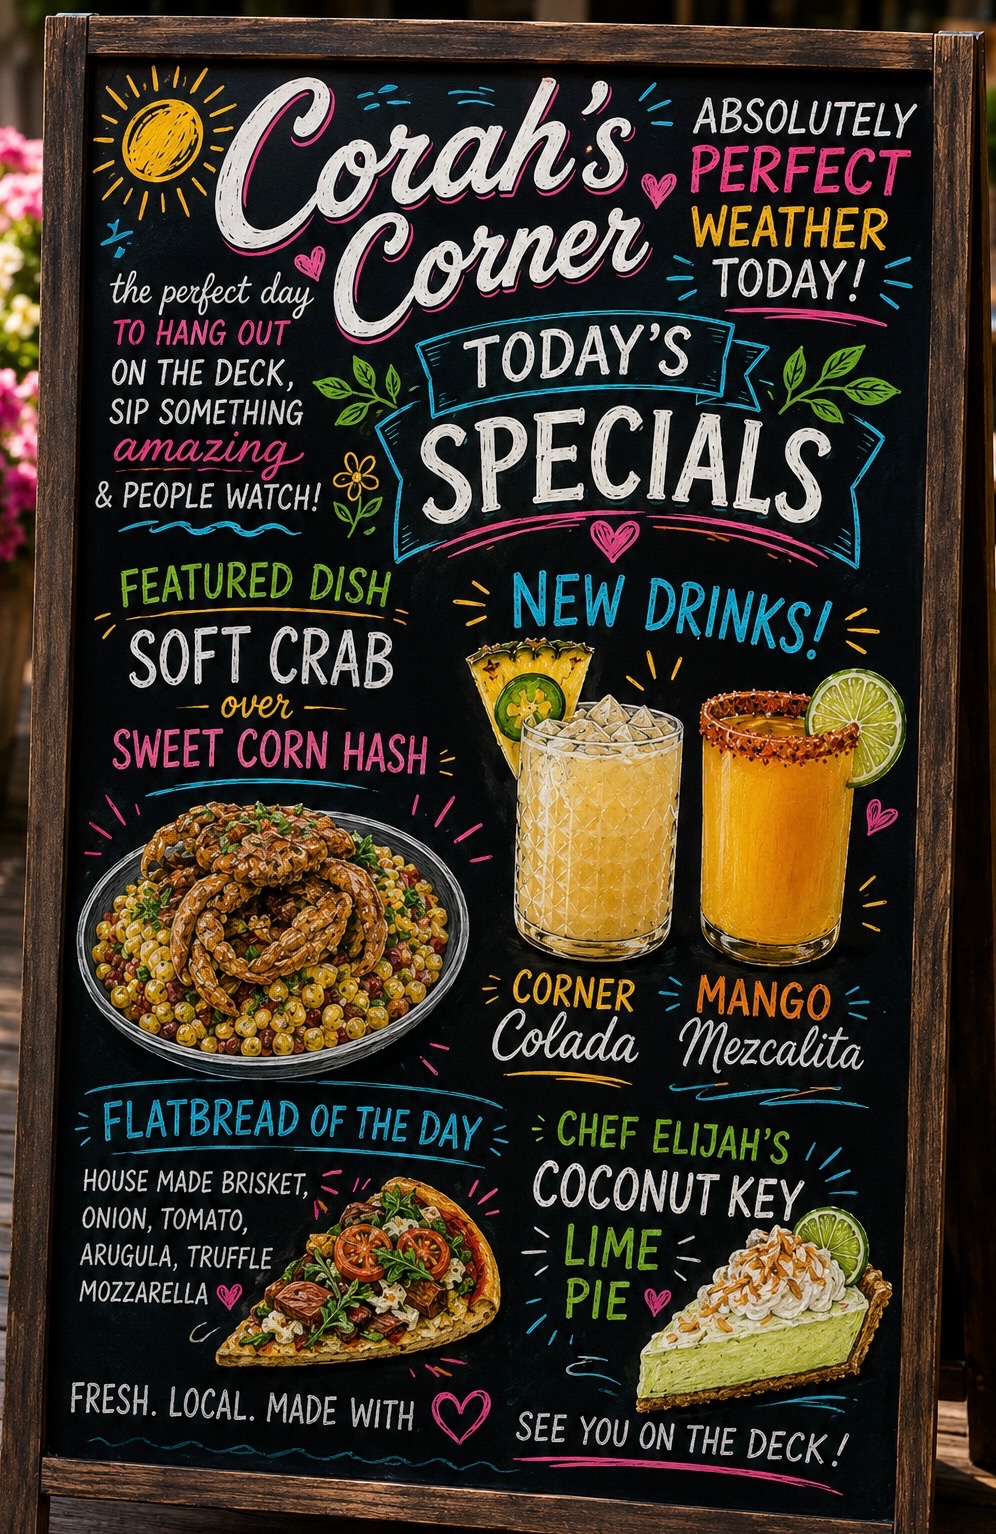 Corah's
Corner
ABSOLUTELY
PERFECT
WEATHER
TODAY!
the perfect day
TO HANG OUT
ON THE DECK,
SIP SOMETHING
amazing
& PEOPLE WATCH!
TODAY'S
SPECIALS
FEATURED DISH
SOFT CRAB
over
SWEET CORN HASH
NEW DRINKS!
CORNER
Colada
MANGO
Mezcalita
FLATBREAD OF THE DAY
HOUSE MADE BRISKET,
ONION, TOMATO,
ARUGULA, TRUFFLE
MOZZARELLA
CHEF ELIJAH'S
COCONUT KEY
LIME
PIE
FRESH. LOCAL. MADE WITH
SEE YOU ON THE DECK!